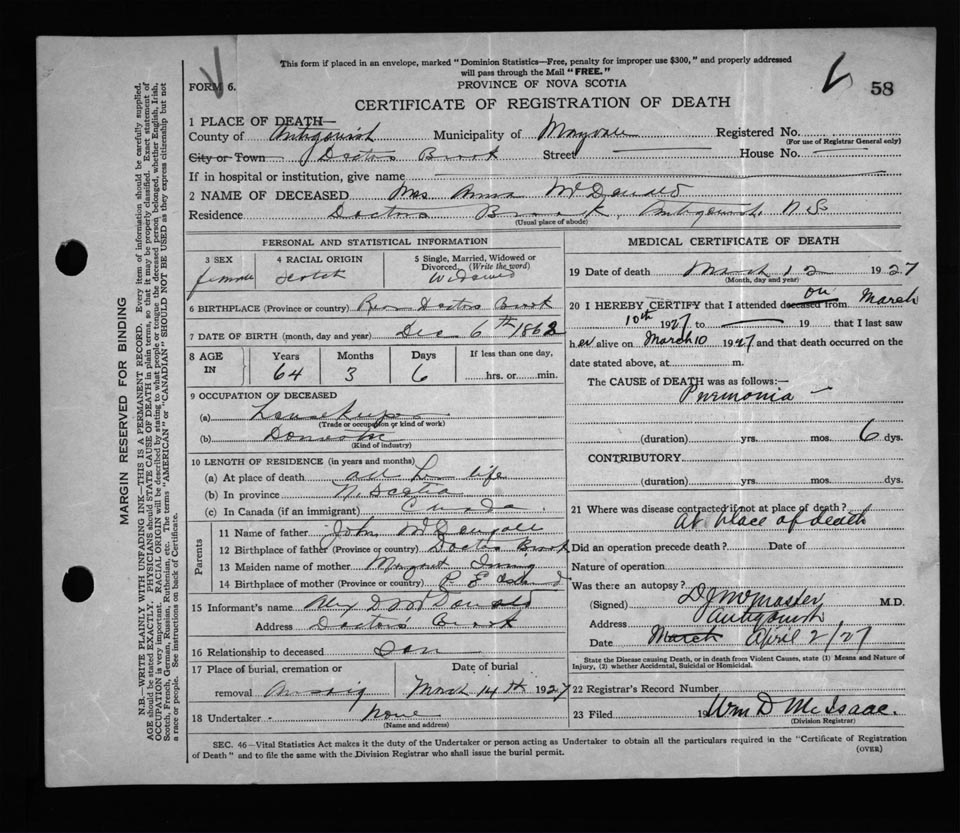 This form if placed in an envelope, marked "Dominion Statistics—Free, penalty for improper use $300," and properly addressed
will pass through the Mail "FREE."
FORM 6.
PROVINCE OF NOVA SCOTIA
58
CERTIFICATE OF REGISTRATION OF DEATH
1 PLACE OF DEATH—
County of Antigonish Municipality of Registered No.
(For use of Registrar General only)
City or Town Doctors Brook Street House No.
If in hospital or institution, give name
2 NAME OF DECEASED Mrs Anna McDonald
Residence Doctors Brook, Antigonish, N.S
(Usual place of abode)
PERSONAL AND STATISTICAL INFORMATION
3 SEX 4 RACIAL ORIGIN 5 Single, Married, Widowed or
Divorced. (Write the word)
female Scotch Widowed
6 BIRTHPLACE (Province or country) Doctors Brook
7 DATE OF BIRTH (month, day and year) Dec 6th 1862
8 AGE IN Years Months Days If less than one day,
64 3 6 hrs. or min.
9 OCCUPATION OF DECEASED
(a) Housekeeper
(Trade or occupation or kind of work)
(b) Domestic
(Kind of industry)
10 LENGTH OF RESIDENCE (in years and months)
(a) At place of death all life
(b) In province N. Scotia
(c) In Canada (if an immigrant) Canada
Parents
11 Name of father John McDougall
12 Birthplace of father (Province or country) Doctors Brook
13 Maiden name of mother Margaret
14 Birthplace of mother (Province or country) P. E Island
15 Informant's name Alex D McDonald
Address Doctors' Brook
16 Relationship to deceased Son
17 Place of burial, cremation or Date of burial
removal Arisaig March 14th 1927
18 Undertaker none
(Name and address)
MEDICAL CERTIFICATE OF DEATH
19 Date of death March 12 1927
(Month, day and year)
20 I HEREBY CERTIFY that I attended deceased from on March
10th 1927 to 19 that I last saw
her alive on March 10 1927 and that death occurred on the
date stated above, at m.
The CAUSE of DEATH was as follows:—
Pnemonia
(duration) yrs. mos. 6 dys.
CONTRIBUTORY
(duration) yrs. mos. dys.
21 Where was disease contracted if not at place of death?
At place of death
Did an operation precede death? Date of
Nature of operation
Was there an autopsy?
(Signed) M.D.
Address Antigonish
Date March April 2/27
State the Disease causing Death, or in death from Violent Causes, state (1) Means and Nature of
Injury, (2) whether Accidental, Suicidal or Homicidal.
22 Registrar's Record Number
23 Filed 19 Wm D McIsaac.
(Division Registrar)
SEC. 46—Vital Statistics Act makes it the duty of the Undertaker or person acting as Undertaker to obtain all the particulars required in the "Certificate of Registration
of Death" and to file the same with the Division Registrar who shall issue the burial permit.
(OVER)
MARGIN RESERVED FOR BINDING
N.B.—WRITE PLAINLY WITH UNFADING INK—THIS IS A PERMANENT RECORD. Every item of information should be carefully supplied.
AGE should be stated EXACTLY. PHYSICIANS should STATE CAUSE OF DEATH in plain terms, so that it may be properly classified. Exact statement of
OCCUPATION is very important. RACIAL ORIGIN will be described by stating to what people or tongue the deceased person belonged, whether English, Irish,
Scotch, French, German, Russian, Ruthenian, etc. The terms "AMERICAN" or "CANADIAN" SHOULD NOT BE USED as they express citizenship but not
a race or people. See instructions on back of Certificate.